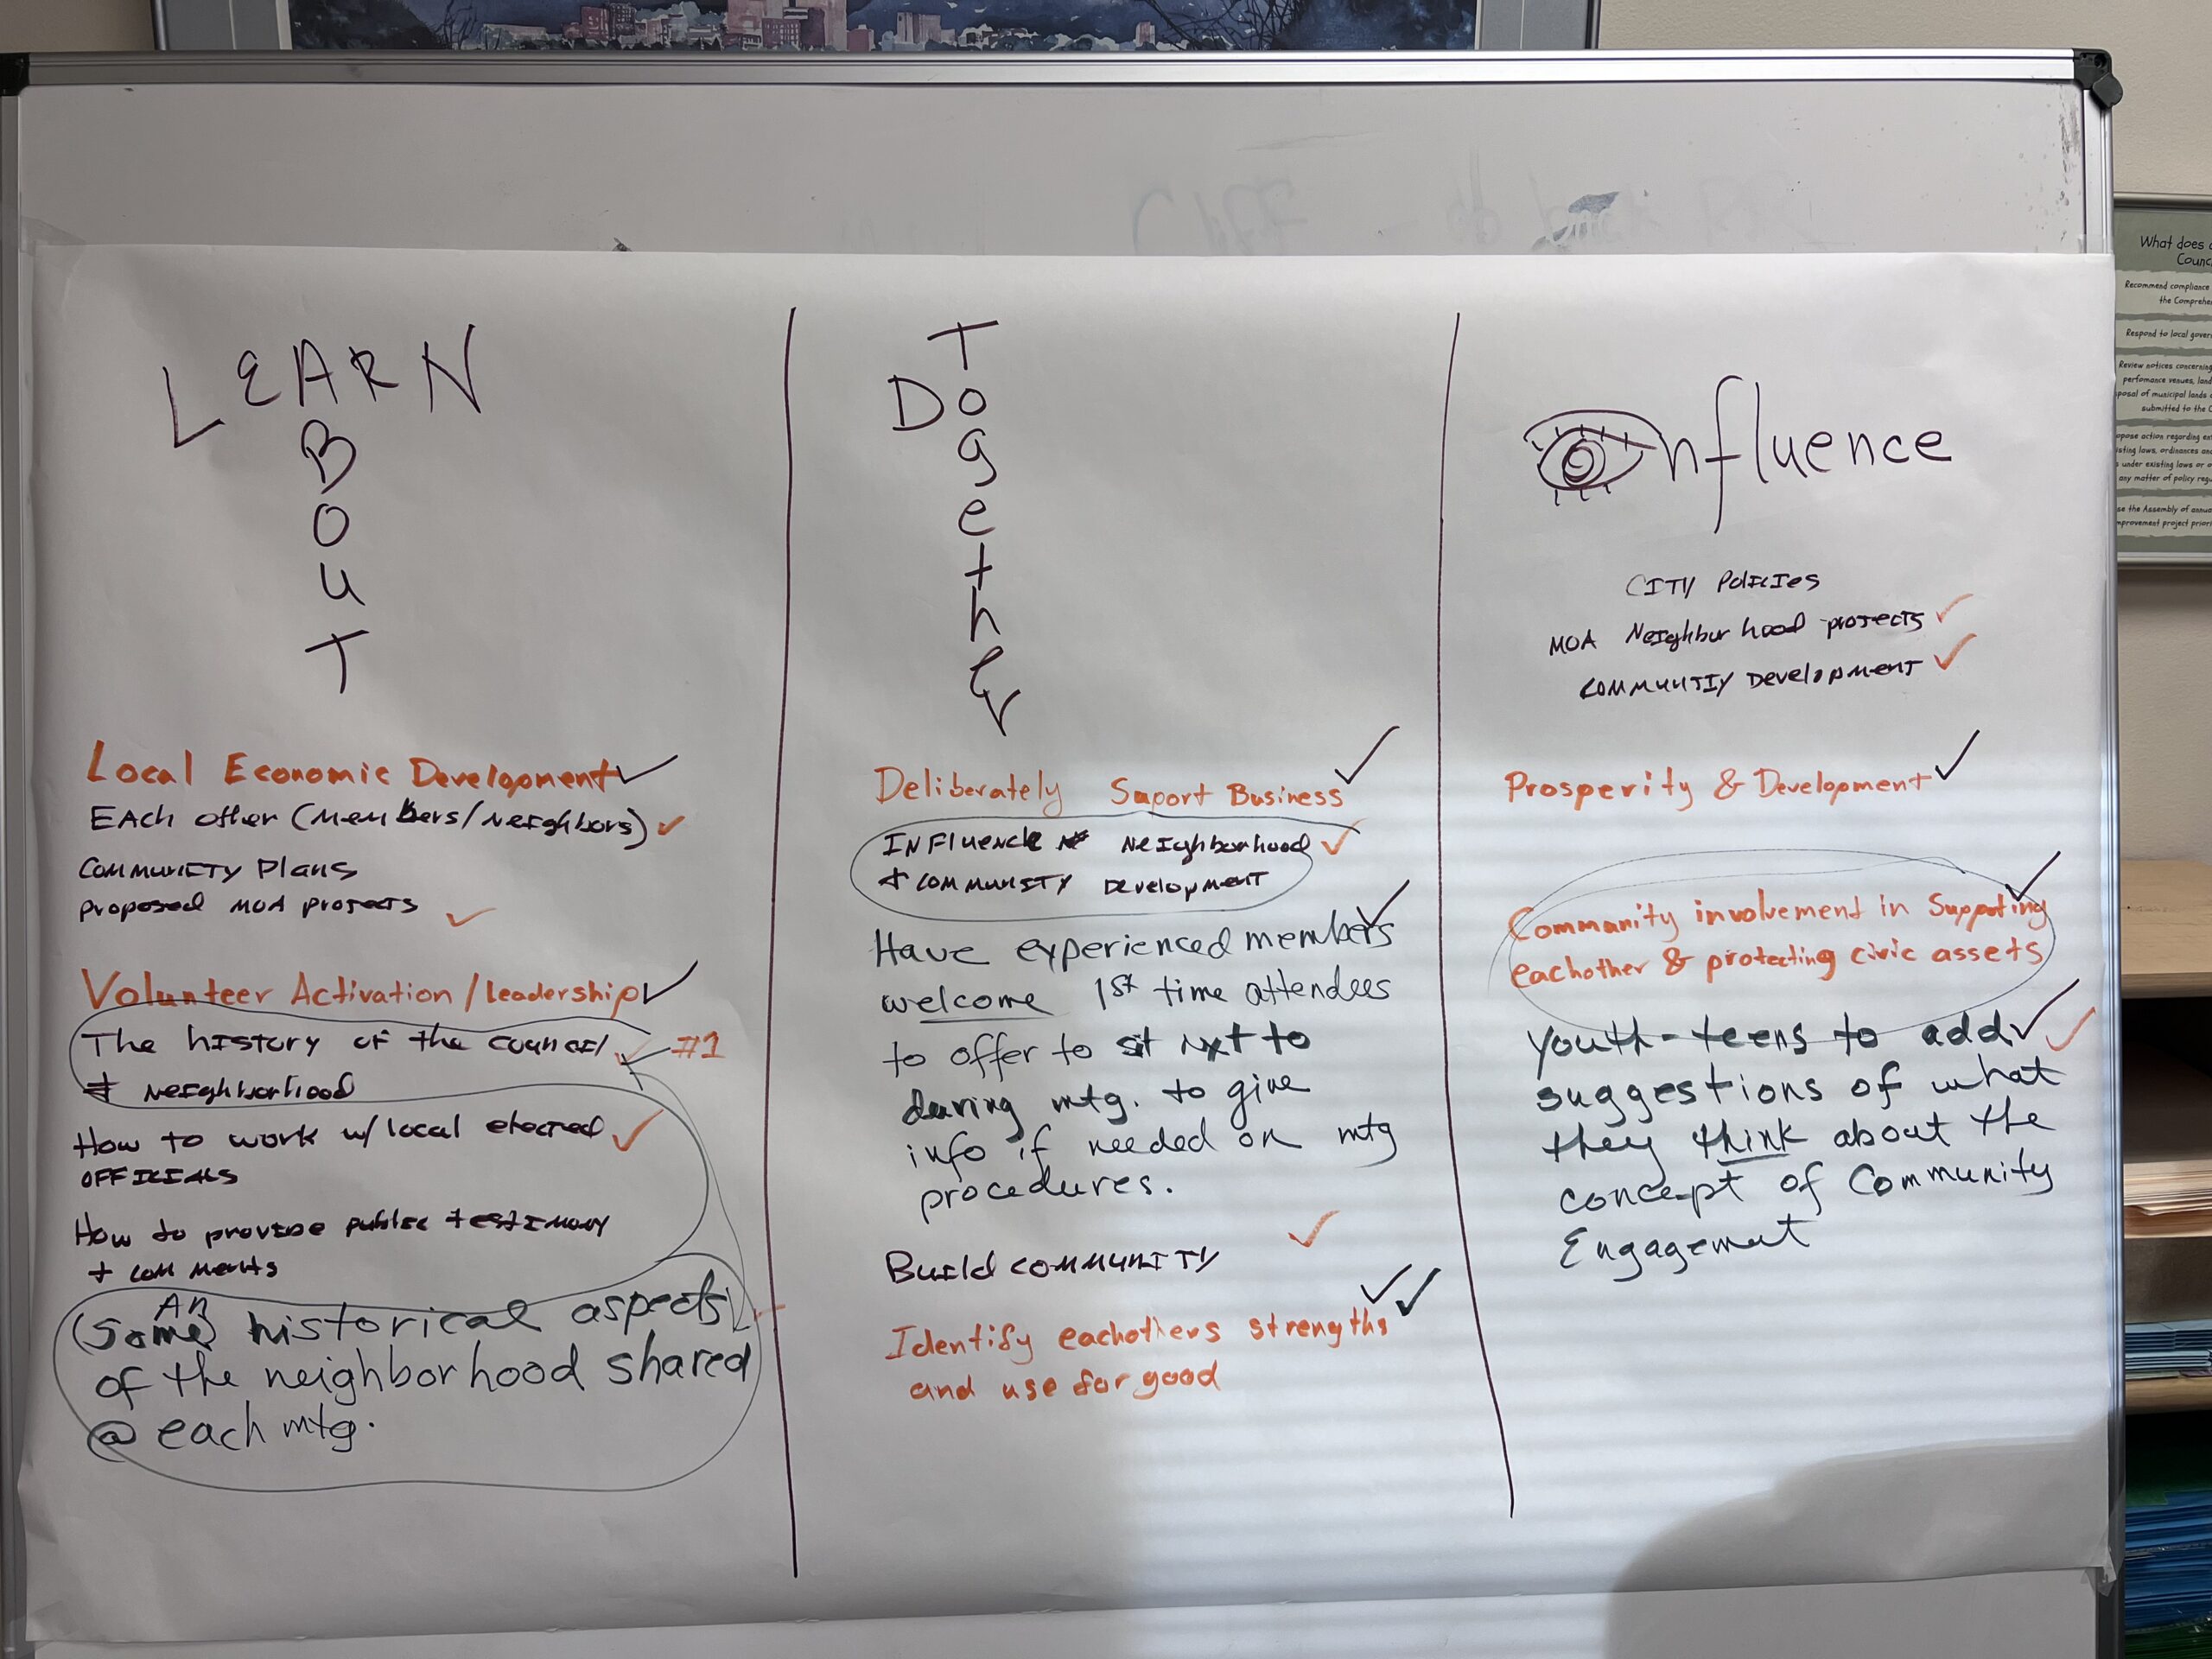 LEARN
ABOUT
Local Economic Development ✓
EAch other (Members/Neighbors) ✓
COMMUNITY Plans
Proposed MOA projects ✓
Volunteer Activation/leadership ✓
The history of the council #1
& Neighborhood
How to work w/ local elected ✓
OFFICIALS
How to provide public testimony
+ comments
(Some) AN historical aspects
of the neighborhood shared
@ each mtg.
Do
Together
Deliberately Suport Business ✓
INFLUENCE Neighborhood ✓
+ COMMUNITY Development
Have experienced members ✓
welcome 1st time attendees
to offer to sit nxt to
during mtg. to give
info if needed on mtg
procedures.
Build COMMUNITY ✓
Identify eachothers strengths ✓✓
and use for good
nfluence
CITY Policies
MOA Neighburhood projects ✓
COMMUNITY Development ✓
Prosperity & Development ✓
Community involvement in Supporting ✓
eachother & protecting civic assets
Youth-teens to add ✓✓
suggestions of what
they think about the
concept of Community
Engagement
What does
Counc
Recommend compliance
the Comprehe
Respond to local gover
Review notices concerning
perfomance venues, land
posal of municipal lands
submitted to the
opose action regarding
sting laws, ordinances and
under existing laws or
any matter of policy reg
se the Assembly of annua
mprovement project priori